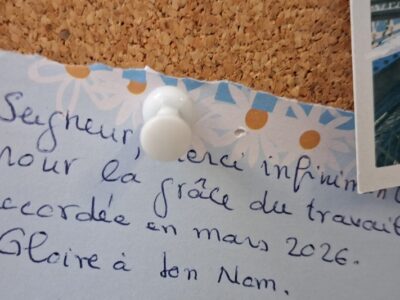 Seigneur, merci infiniment
pour la grâce du travail
accordée en mars 2026.
Gloire à ton Nom.